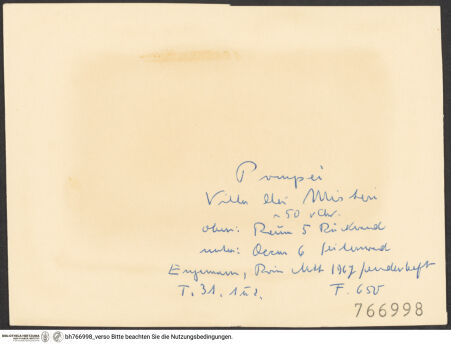 Pompei
Villa dei Misteri
~50 v Chr.
oben: Raum 5 Rückwand
unten: Raum 6 Seitenwand
Engemann, Röm Mitt 1967 Sonderheft
T. 31, 1 u 2. F. 650
766998
BIBLIOTHECA HERTZIANA
bh766998_verso Bitte beachten Sie die Nutzungsbedingungen.